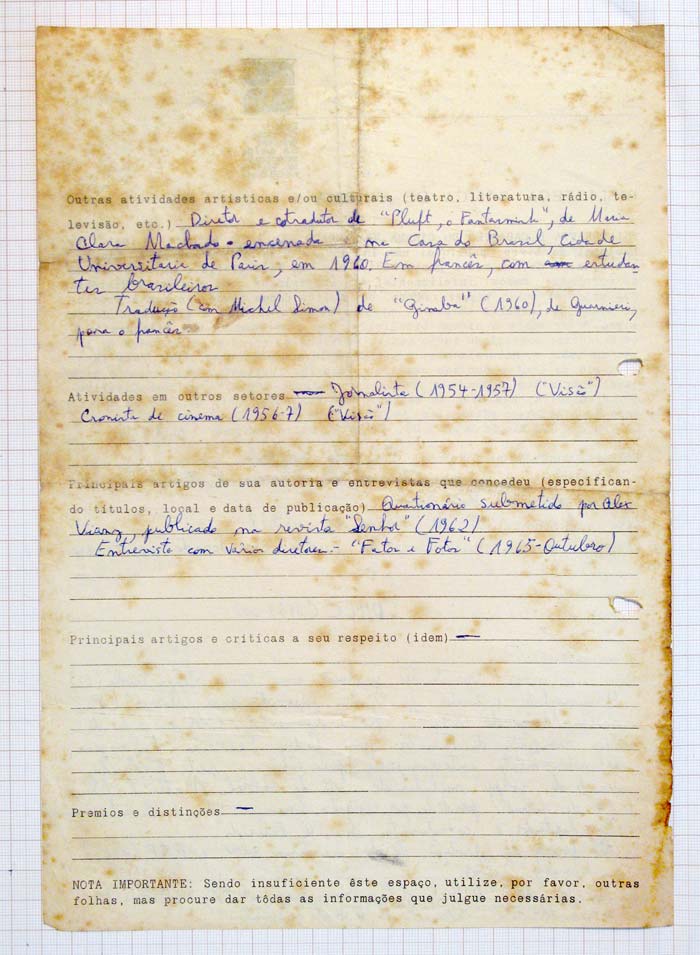 Outras atividades artísticas e/ou culturais (teatro, literatura, rádio, te-
levisão, etc.) Diretor e cotradutor de "Pluft, o Fantasminh", de Maria
Clara Machado - encenada na Casa do Brasil, Cidade
Universitaria de Paris, em 1960. Em francês, com estudan
tes brasileiros
Tradução (com Michel Simon) de "Gimba" (1960), de Guarnieri,
para o francês.
Atividades em outros setores Jornalista (1954-1957) ("Visão")
Cronista de cinema (1956-7) ("Visão")
Principais artigos de sua autoria e entrevistas que concedeu (especifican-
do títulos, local e data de publicação) Questionário submetido por Alex
Viany, publicado na revista "Senhor" (1962)
Entrevista com vários diretores - "Fatos e Fotos" (1965-Outubro)
Principais artigos e críticas a seu respeito (idem) —
Premios e distinções —
NOTA IMPORTANTE: Sendo insuficiente êste espaço, utilize, por favor, outras
folhas, mas procure dar tôdas as informações que julgue necessárias.